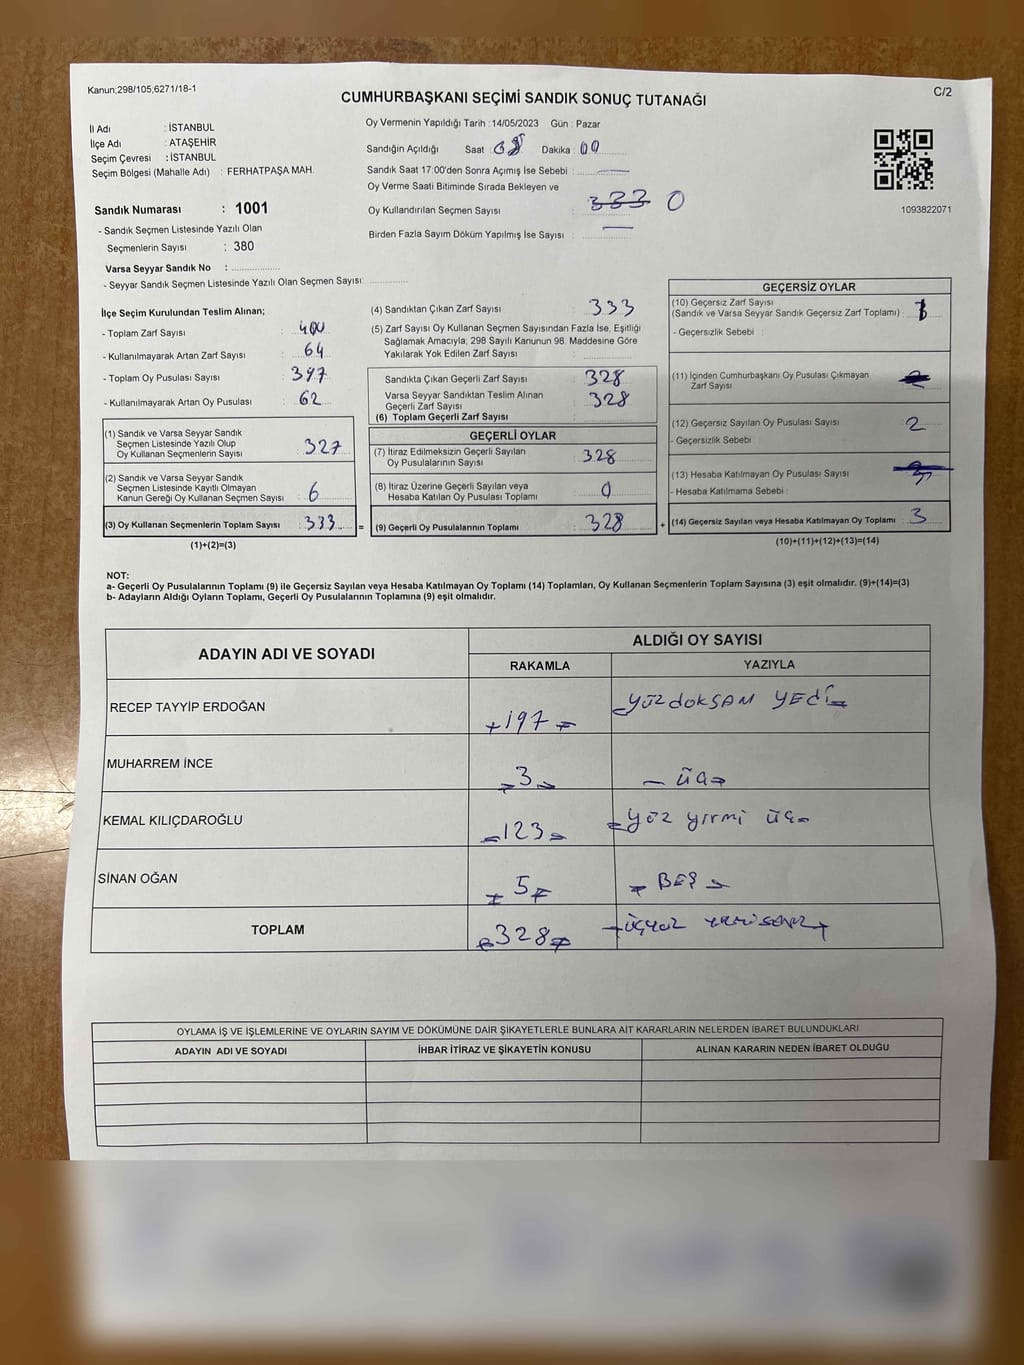 Kanun;298/105;6271/18-1
C/2
CUMHURBAŞKANI SEÇİMİ SANDIK SONUÇ TUTANAĞI
İl Adı : İSTANBUL
İlçe Adı : ATAŞEHİR
Seçim Çevresi : İSTANBUL
Seçim Bölgesi (Mahalle Adı) : FERHATPAŞA MAH.
Oy Vermenin Yapıldığı Tarih :14/05/2023 Gün : Pazar
Sandığın Açıldığı Saat : 08 Dakika : 00
Sandık Saat 17:00'den Sonra Açımış İse Sebebi :
Oy Verme Saati Bitiminde Sırada Bekleyen ve
Oy Kullandırılan Seçmen Sayısı : 333 0
Birden Fazla Sayım Döküm Yapılmış İse Sayısı :
1093822071
Sandık Numarası : 1001
- Sandık Seçmen Listesinde Yazılı Olan
Seçmenlerin Sayısı : 380
Varsa Seyyar Sandık No :
- Seyyar Sandık Seçmen Listesinde Yazılı Olan Seçmen Sayısı:
İlçe Seçim Kurulundan Teslim Alınan;
- Toplam Zarf Sayısı : 400
- Kullanılmayarak Artan Zarf Sayısı : 64
- Toplam Oy Pusulası Sayısı : 397
- Kullanılmayarak Artan Oy Pusulası : 62
(1) Sandık ve Varsa Seyyar Sandık
Seçmen Listesinde Yazılı Olup
Oy Kullanan Seçmenlerin Sayısı : 327
(2) Sandık ve Varsa Seyyar Sandık
Seçmen Listesinde Kayıtlı Olmayan
Kanun Gereği Oy Kullanan Seçmen Sayısı : 6
(3) Oy Kullanan Seçmenlerin Toplam Sayısı : 333 =
(1)+(2)=(3)
(4) Sandıktan Çıkan Zarf Sayısı : 333
(5) Zarf Sayısı Oy Kullanan Seçmen Sayısından Fazla İse, Eşitliği
Sağlamak Amacıyla; 298 Sayılı Kanunun 98. Maddesine Göre
Yakılarak Yok Edilen Zarf Sayısı :
Sandıkta Çıkan Geçerli Zarf Sayısı : 328
Varsa Seyyar Sandıktan Teslim Alınan
Geçerli Zarf Sayısı : 328
(6) Toplam Geçerli Zarf Sayısı :
GEÇERLİ OYLAR
(7) İtiraz Edilmeksizin Geçerli Sayılan
Oy Pusulalarının Sayısı : 328
(8) İtiraz Üzerine Geçerli Sayılan veya
Hesaba Katılan Oy Pusulası Toplamı : 0
(9) Geçerli Oy Pusulalarının Toplamı : 328 +
GEÇERSİZ OYLAR
(10) Geçersiz Zarf Sayısı
(Sandık ve Varsa Seyyar Sandık Geçersiz Zarf Toplamı) :
- Geçersizlik Sebebi :
(11) İçinden Cumhurbaşkanı Oy Pusulası Çıkmayan
Zarf Sayısı
(12) Geçersiz Sayılan Oy Pusulası Sayısı : 2
- Geçersizlik Sebebi
(13) Hesaba Katılmayan Oy Pusulası Sayısı :
- Hesaba Katılmama Sebebi :
(14) Geçersiz Sayılan veya Hesaba Katılmayan Oy Toplamı : 3
(10)+(11)+(12)+(13)=(14)
NOT:
a- Geçerli Oy Pusulalarının Toplamı (9) ile Geçersiz Sayılan veya Hesaba Katılmayan Oy Toplamı (14) Toplamları, Oy Kullanan Seçmenlerin Toplam Sayısına (3) eşit olmalıdır. (9)+(14)=(3)
b- Adayların Aldığı Oyların Toplamı, Geçerli Oy Pusulalarının Toplamına (9) eşit olmalıdır.
ADAYIN ADI VE SOYADI
ALDIĞI OY SAYISI
RAKAMLA YAZIYLA
RECEP TAYYİP ERDOĞAN 197 YÜZ dOKSAN YEDİ
MUHARREM İNCE 3 ÜÇ
KEMAL KILIÇDAROĞLU 123 YÜZ yırmi üç
SİNAN OĞAN 5 BEŞ
TOPLAM 328 üçyüz yirmisekiz
OYLAMA İŞ VE İŞLEMLERİNE VE OYLARIN SAYIM VE DÖKÜMÜNE DAİR ŞİKAYETLERLE BUNLARA AİT KARARLARIN NELERDEN İBARET BULUNDUKLARI
ADAYIN ADI VE SOYADI İHBAR İTİRAZ VE ŞİKAYETİN KONUSU ALINAN KARARIN NEDEN İBARET OLDUĞU